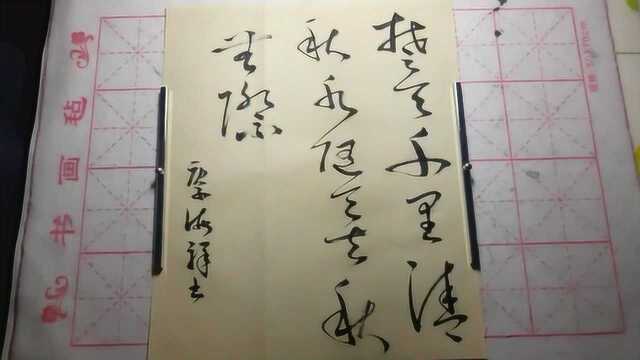 楚天千里清
秋水随天去秋
無際
海祥书
书画毡